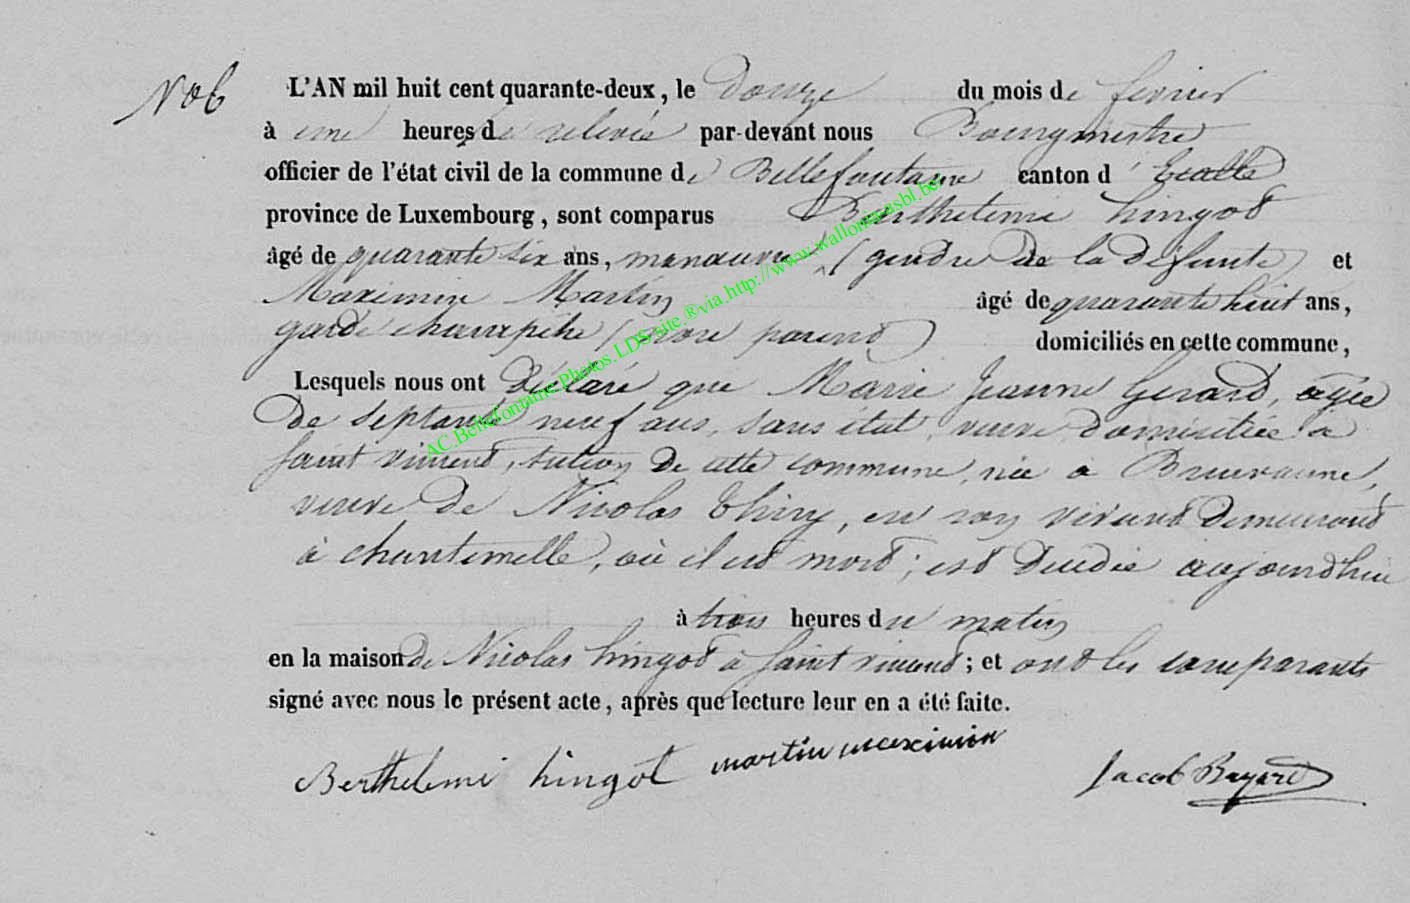 No 6
L'AN mil huit cent quarante-deux, le douze du mois de fevrier
à une heures de relevée par-devant nous Bourgmestre
officier de l'état civil de la commune de Bellefontaine canton d' Etalle
province de Luxembourg, sont comparus Barthelemie hingot
âgé de quarante six ans, manœuvre (gendre de la defunte) et
Maximin Martin âgé de quarante huit ans,
garde champêtre (non parend) domiciliés en cette commune,
Lesquels nous ont déclaré que Marie Jeanne Gerard, agée
de septante neuf ans, sans état, veuve domiciliée a
saint vincend, section de cette commune, née a Breuvanne,
veuve de Nicolas Thiry, en son vivand demeurand
à chantemelle, où il est mord; est décédée aujourdhui
à trois heures du matin
en la maison de Nicolas hingod à saint vincend; et ont les comparants
signé avec nous le présent acte, après que lecture leur en a été faite.
Berthelemi hingot martin maximin Jacob Bayard
AC.Bellefontaine.Photos.LDS.site ®via http://www.walloniaasbl.be/